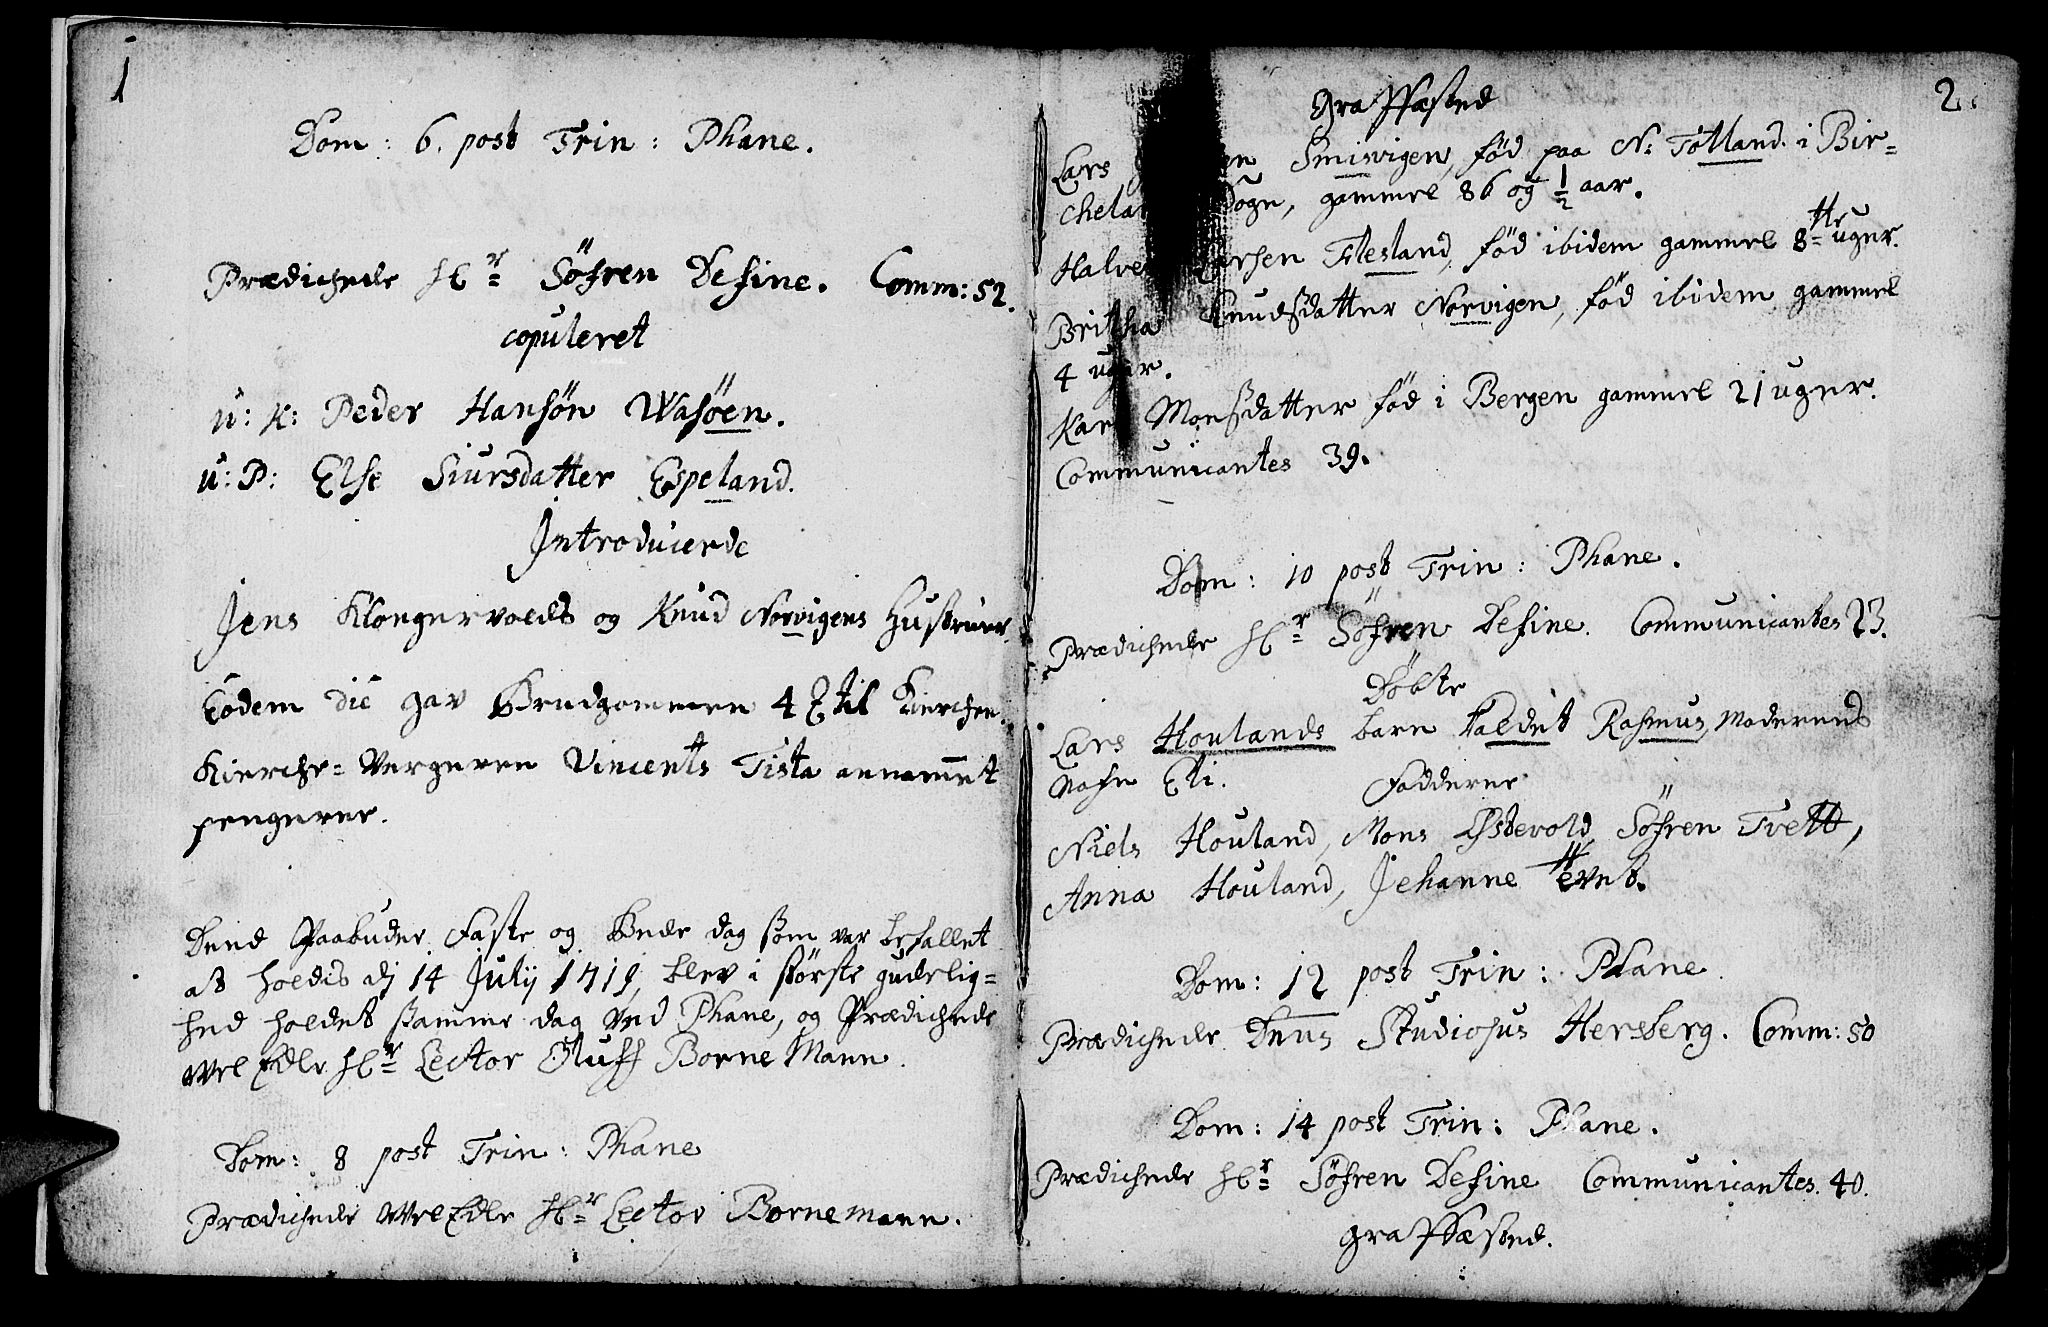 1
Dom: 6. post Trin: Phane.
Prædichede Hr Söfren Define. Comm: 52.
copuleret
u: K: Peder Hansön Wasöen.
u: P: Else Siursdatter Espeland.
Introducerde
Jens Klongervolds og Knud Norvigens Hustruer.
Eodem die gav Brudgommen 4 til Kierchen.
Kierche-Vergeren Vincents Tista annammet
pengerne.
Dend Paabuden Faste og Bede dag som var befallet
at holdis dj 14 Julij 1719, blev i störste gudelig=
hed holdet samme dag ved Phane, og Prædichede
WelEdle Hr Lector Oluff BorneMann.
Dom: 8 post Trin: Phane
Prædichede WelEdle Hr Lector Bornemann.
2.
Graffæsted
Lars Smisvigen, fød paa N: Totland i Bir=
Sogn, gammel 86 og ½ aar.
Larsen Flesland, fød ibidem gammel 8tte uger.
Britha Knudsdatter Norvigen, fød ibidem gammel
4 uger.
Kari Monsdatter fød i Bergen gammel 21 uger.
Communicantes 39.
Dom: 10 post Trin: Phane.
Prædichede Hr Söfren Define. Communicantes 23.
Döbte
Lars Houlands barn kaldet Rasmus, Moderens
Nafn Eli.
Fadderne
Niels Houland, Mons Østevold, Söfren Trett,
Anna Houland, Jehanne Tvet.
Dom: 12 post Trin: Phane.
Prædichede Dnus Studiosus Hersberg. Comm: 50
Dom: 14 post Trin: Phane.
Prædichede Hr Söfren Define Communicantes. 40.
Graffæsted.